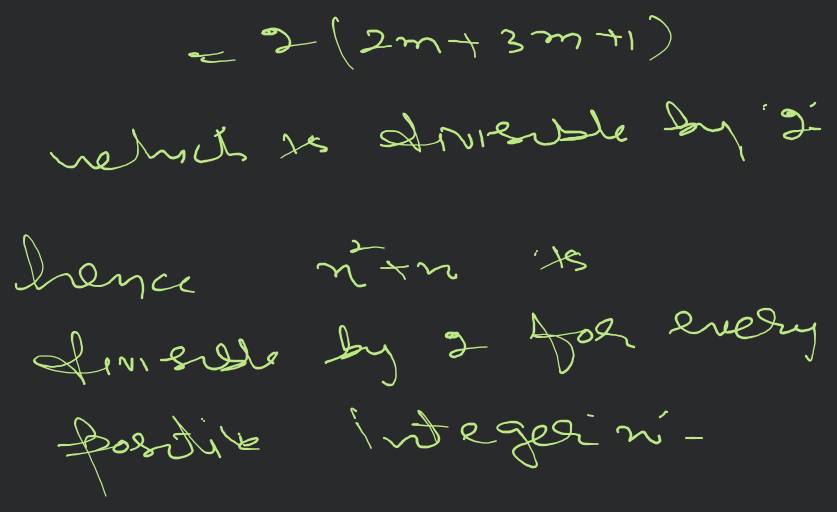 = 2(2m+3m+1)
which is divisible by '2'
hence n²+n is
divisible by 2 for every
positive integer 'n' -